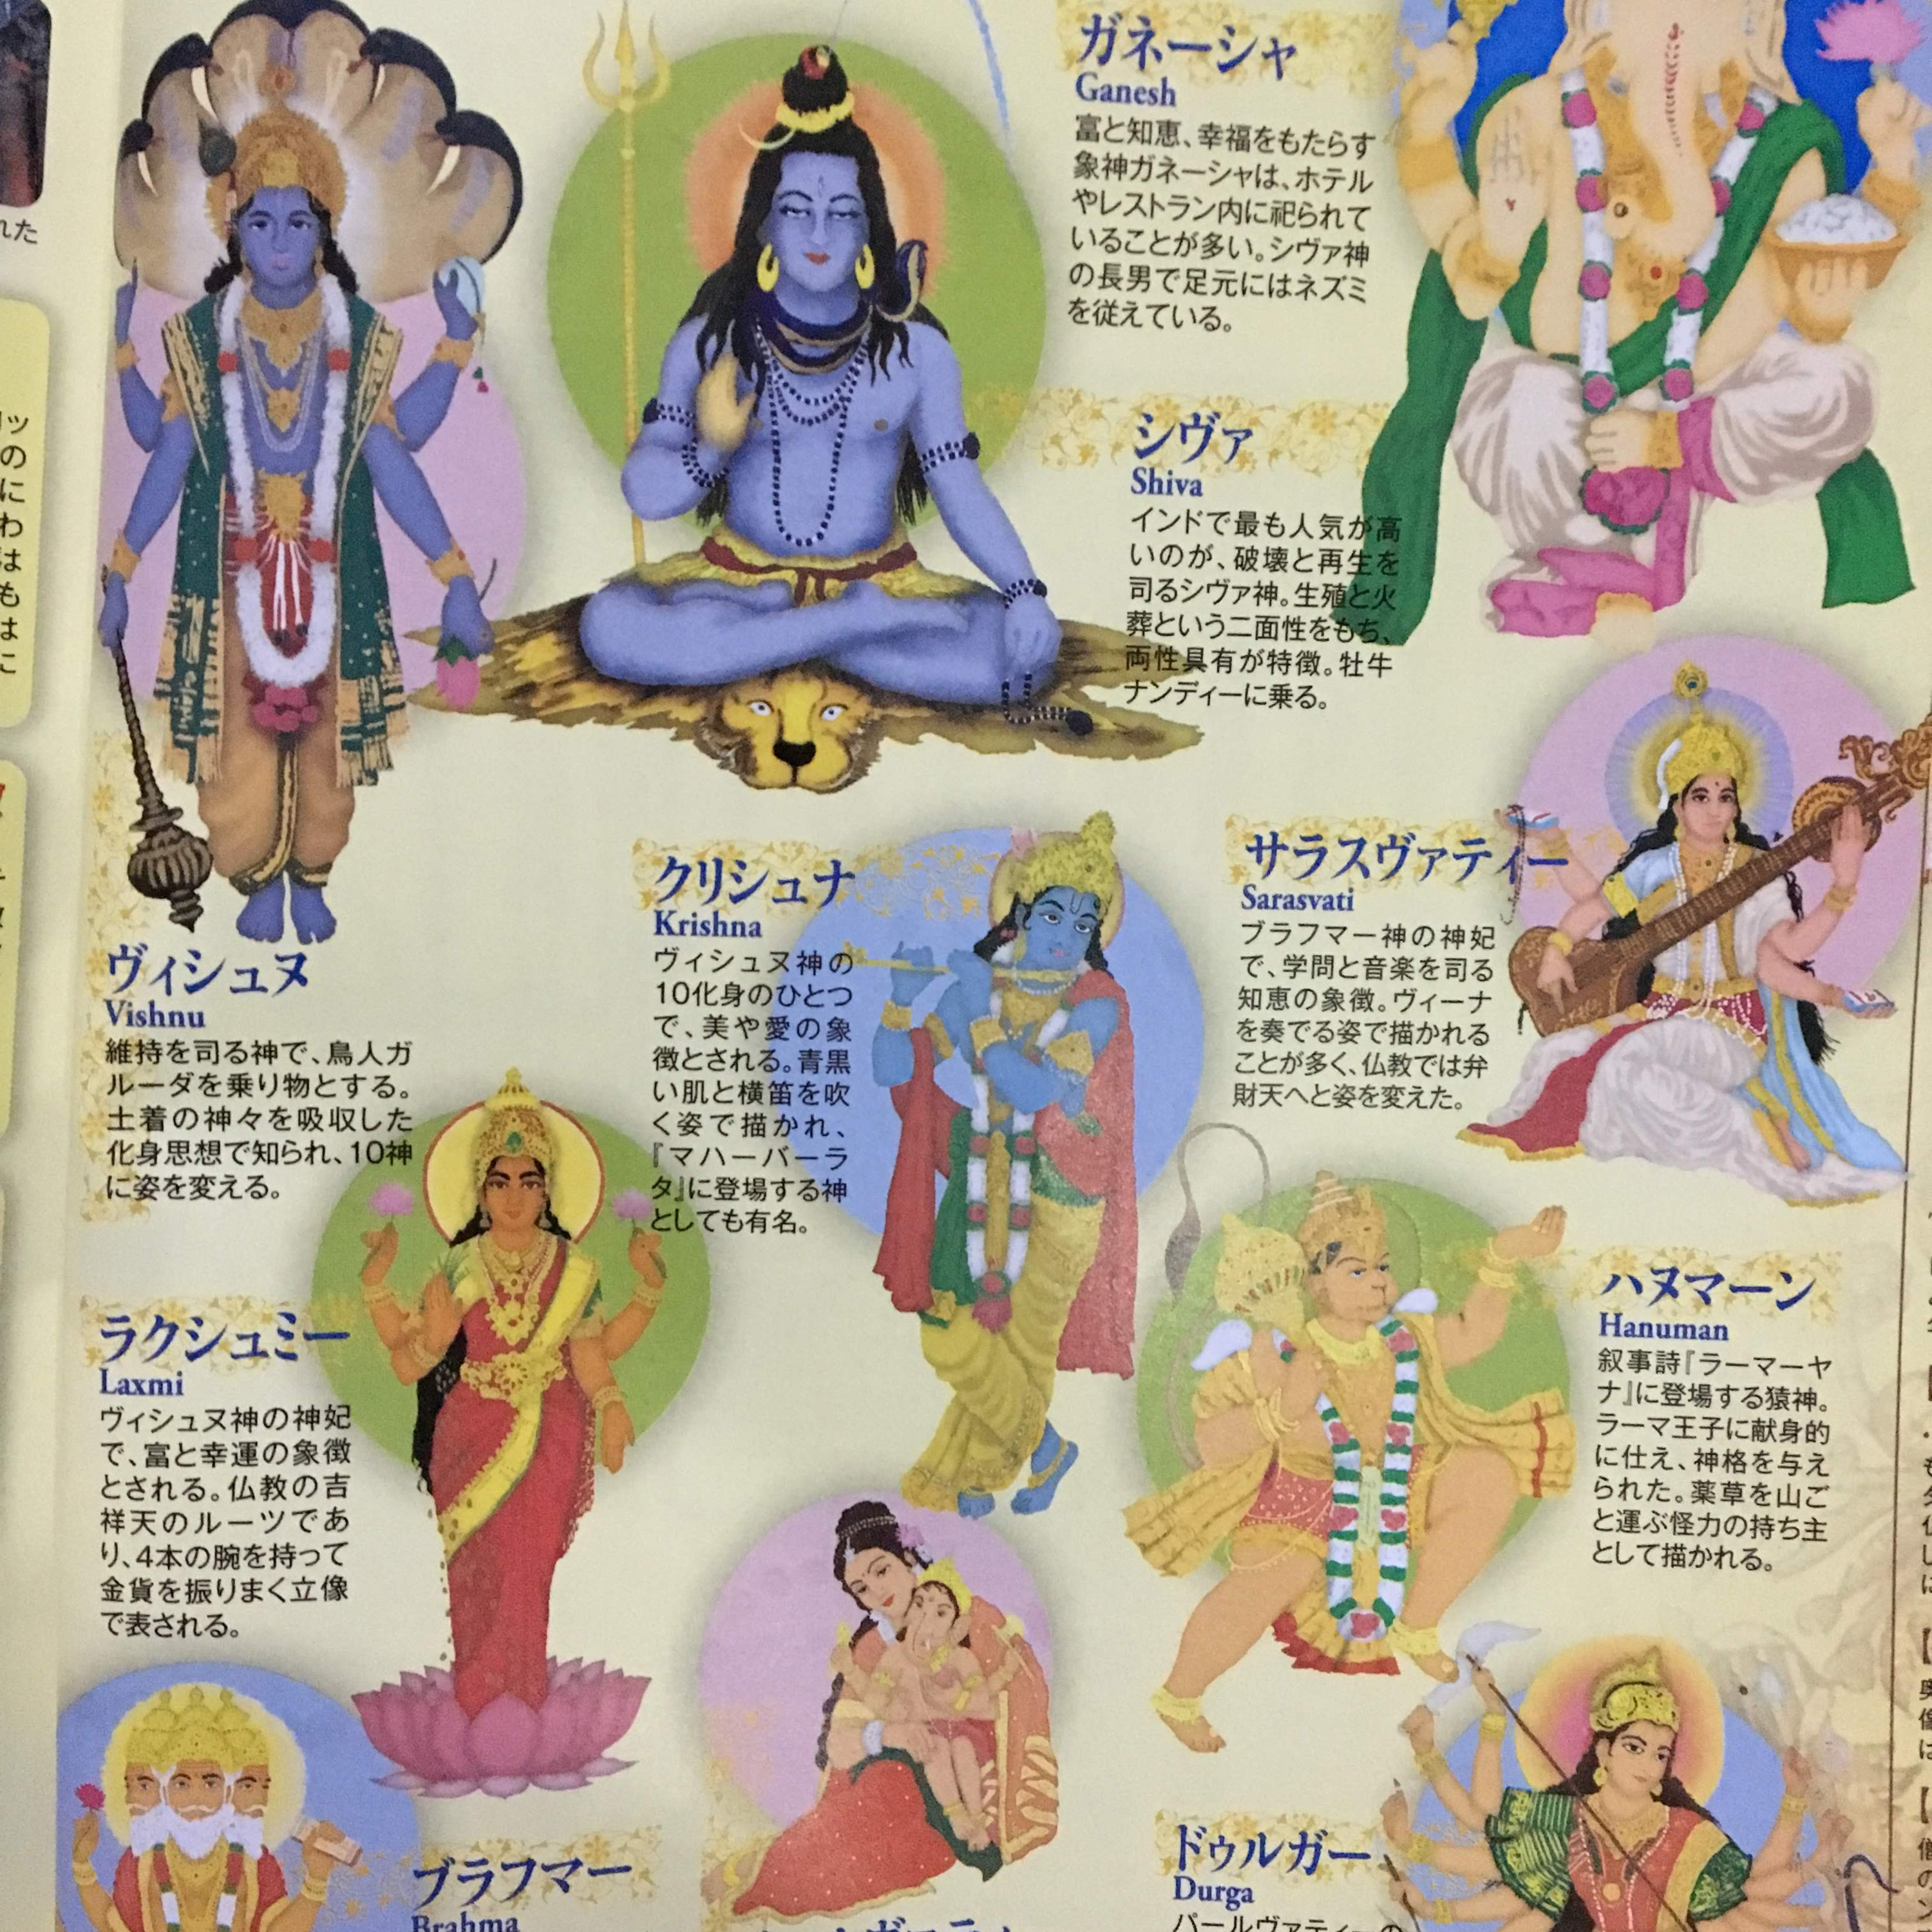 ガネーシャ
Ganesh
富と知恵、幸福をもたらす
象神ガネーシャは、ホテル
やレストラン内に祀られて
いることが多い。シヴァ神
の長男で足元にはネズミ
を従えている。
シヴァ
Shiva
インドで最も人気が高
いのが、破壊と再生を
司るシヴァ神。生殖と火
葬という二面性をもち、
両性具有が特徴。牡牛
ナンディーに乗る。
ヴィシュヌ
Vishnu
維持を司る神で、鳥人ガ
ルーダを乗り物とする。
土着の神々を吸収した
化身思想で知られ、10神
に姿を変える。
クリシュナ
Krishna
ヴィシュヌ神の
10化身のひとつ
で、美や愛の象
徴とされる。青黒
い肌と横笛を吹
く姿で描かれ、
『マハーバーラ
タ』に登場する神
としても有名。
サラスヴァティー
Sarasvati
ブラフマー神の神妃
で、学問と音楽を司る
知恵の象徴。ヴィーナ
を奏でる姿で描かれる
ことが多く、仏教では弁
財天へと姿を変えた。
ラクシュミー
Laxmi
ヴィシュヌ神の神妃
で、富と幸運の象徴
とされる。仏教の吉
祥天のルーツであ
り、4本の腕を持って
金貨を振りまく立像
で表される。
ハヌマーン
Hanuman
叙事詩『ラーマーヤ
ナ』に登場する猿神。
ラーマ王子に献身的
に仕え、神格を与え
られた。薬草を山ご
と運ぶ怪力の持ち主
として描かれる。
ブラフマー
Brahma
ドゥルガー
Durga
パールヴァティーの